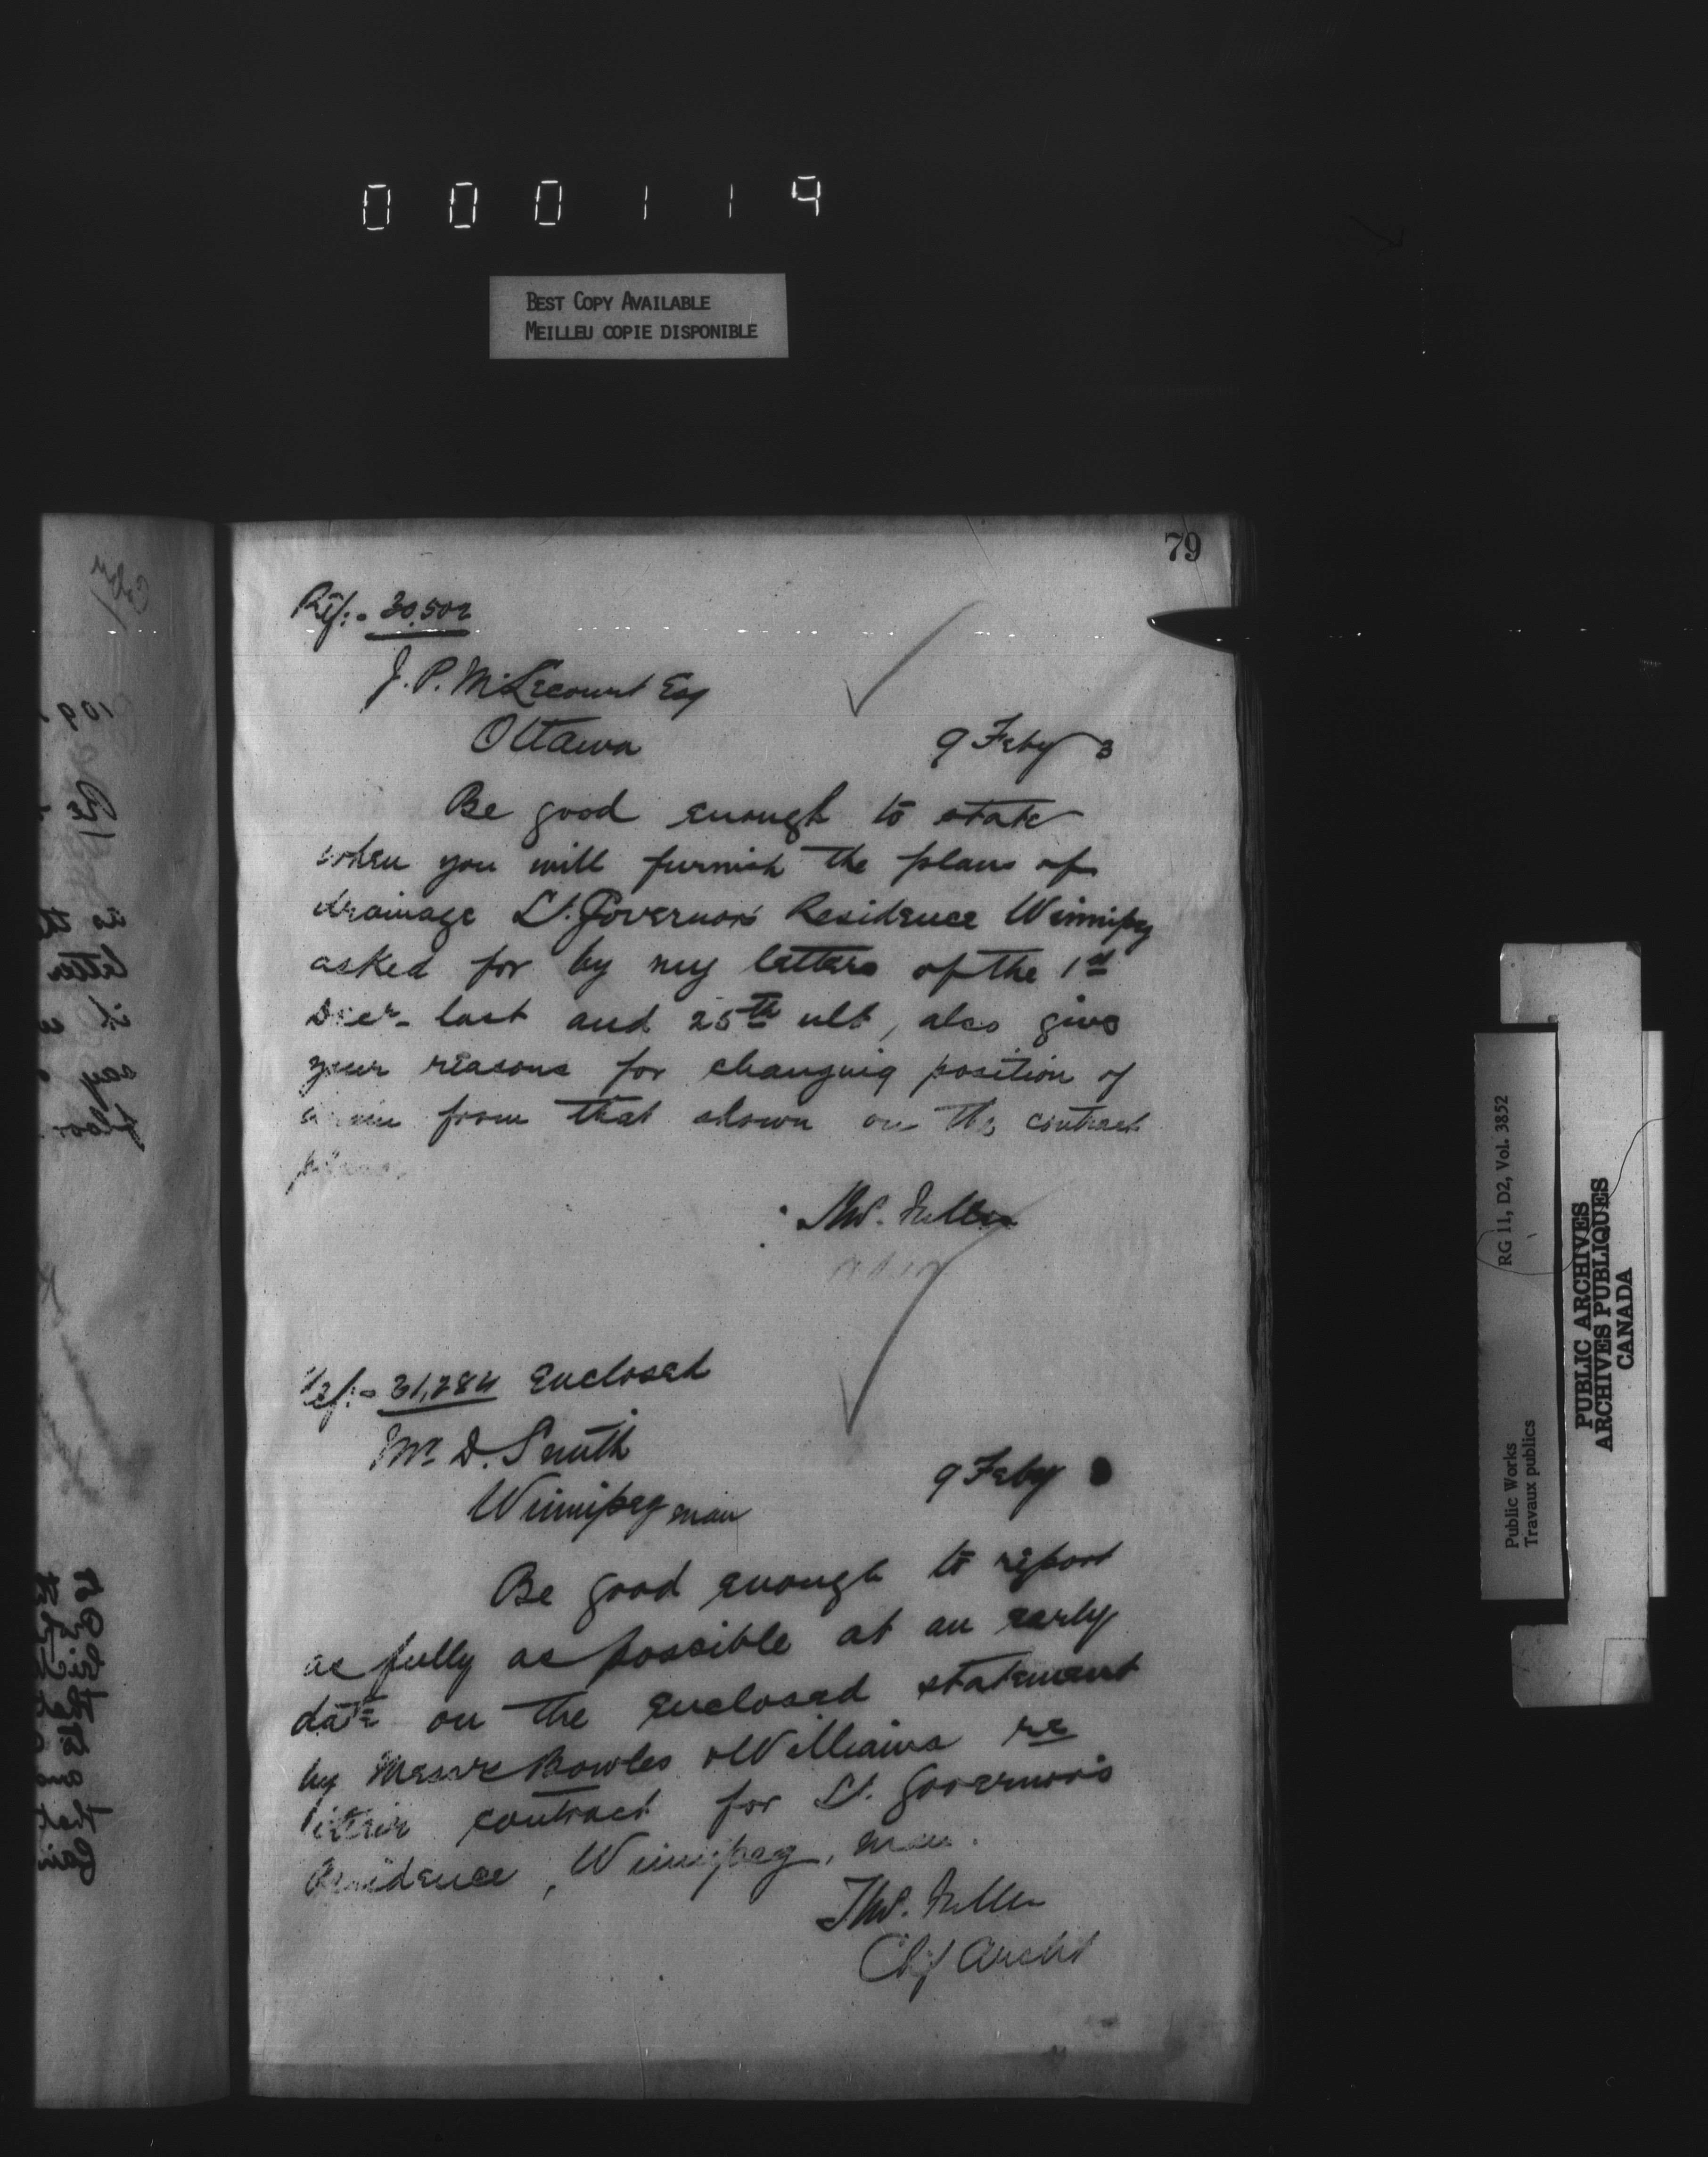 000119
BEST COPY AVAILABLE
MEILLEU COPIE DISPONIBLE
79
Ref:- 30,502
J. P. M. Lecourt Esq
Ottawa
9 Feby 3
Be good enough to state
when you will furnish the plans of
drainage Lt. Governor's Residence Winnipeg
asked for by my letters of the 1st
Decr. last and 25th ult, also give
your reasons for changing position of
from that shown on the contract
plans.
Thos. Fuller
Ref:- 31,284 Enclosed
Mr D. Smith
Winnipeg Man
9 Feby
Be good enough to report
as fully as possible at an early
date on the enclosed statement
by Messrs Bowles & Williams re
their contract for Lt. Governor's
Residence, Winnipeg, Man.
Thos. Fuller
Chf Archt
RG 11, D2, Vol. 3852
Public Works
Travaux publics
PUBLIC ARCHIVES
ARCHIVES PUBLIQUES
CANADA